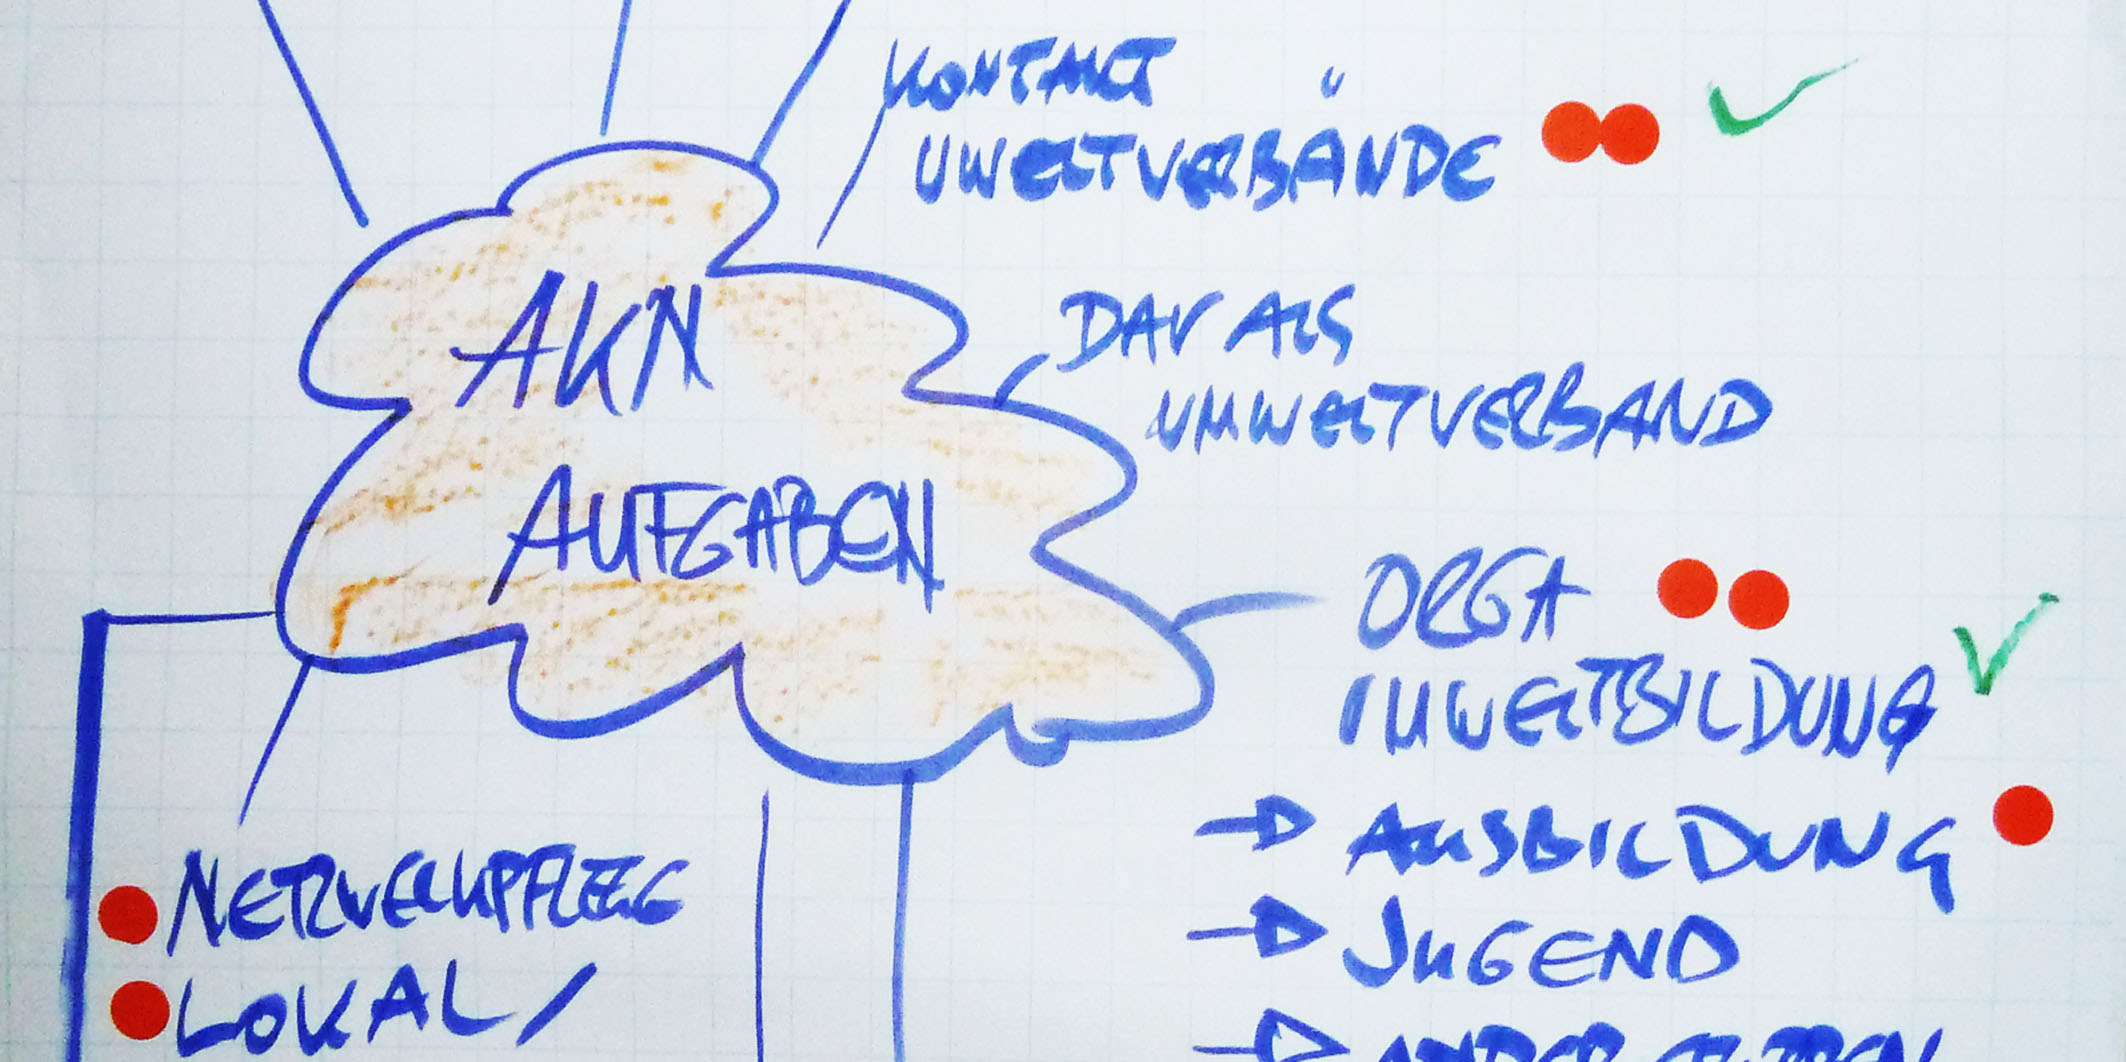 KONTAKT
UWELTVERBÄNDE
DAV ALS
UMWELTVERBAND
AKN
AUFGABEN
ORGA
UMWELTBILDUNG
→ AUSBILDUNG
→ JUGEND
NETZWERKPFLEGE
LOKAL/